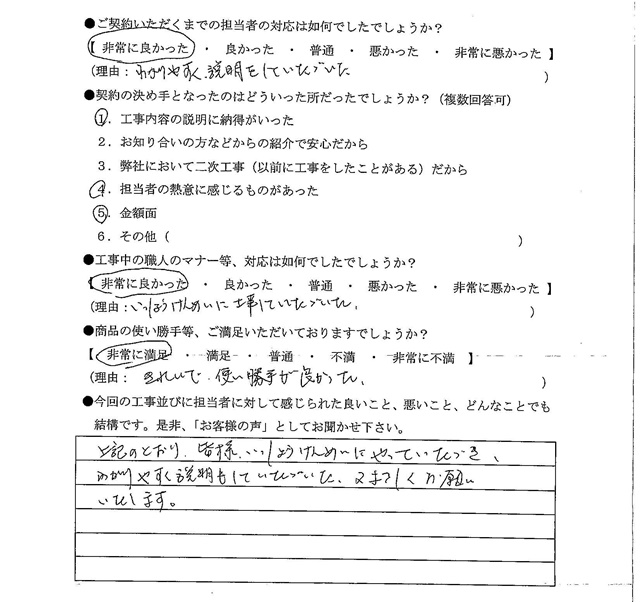 ●ご契約いただくまでの担当者の対応は如何でしたでしょうか?
【 非常に良かった ・ 良かった ・ 普通 ・ 悪かった ・ 非常に悪かった 】
(理由: わかりやすく説明をしていただいた )
●契約の決め手となったのはどういった所だったでしょうか?(複数回答可)
1. 工事内容の説明に納得がいった
2. お知り合いの方などからの紹介で安心だから
3. 弊社において二次工事(以前に工事をしたことがある)だから
4. 担当者の熱意に感じるものがあった
5. 金額面
6. その他( )
●工事中の職人のマナー等、対応は如何でしたでしょうか?
【 非常に良かった ・ 良かった ・ 普通 ・ 悪かった ・ 非常に悪かった 】
(理由: いっしょうけんめいに工事していただいた。 )
●商品の使い勝手等、ご満足いただいておりますでしょうか?
【 非常に満足 ・ 満足 ・ 普通 ・ 不満 ・ 非常に不満 】
(理由: きれいで、使い勝手が良かった。 )
●今回の工事並びに担当者に対して感じられた良いこと、悪いこと、どんなことでも
結構です。是非、「お客様の声」としてお聞かせ下さい。
上記のとおり、皆様、いっしょうけんめいにやっていただき、
わかりやすく説明もしていただいた、よろしくお願い
いたします。